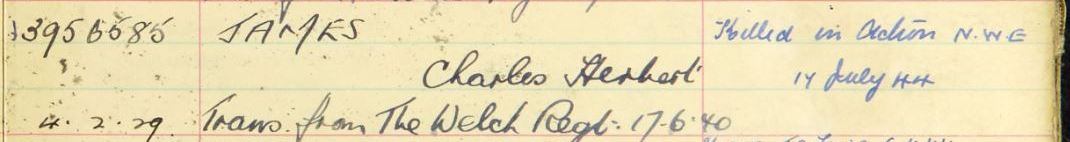 3955585 JAMES Killed in Action N.W.E
Charles Herbert 17 July 44
4.2.29 Trans. from The Welch Regt: 17.6.40